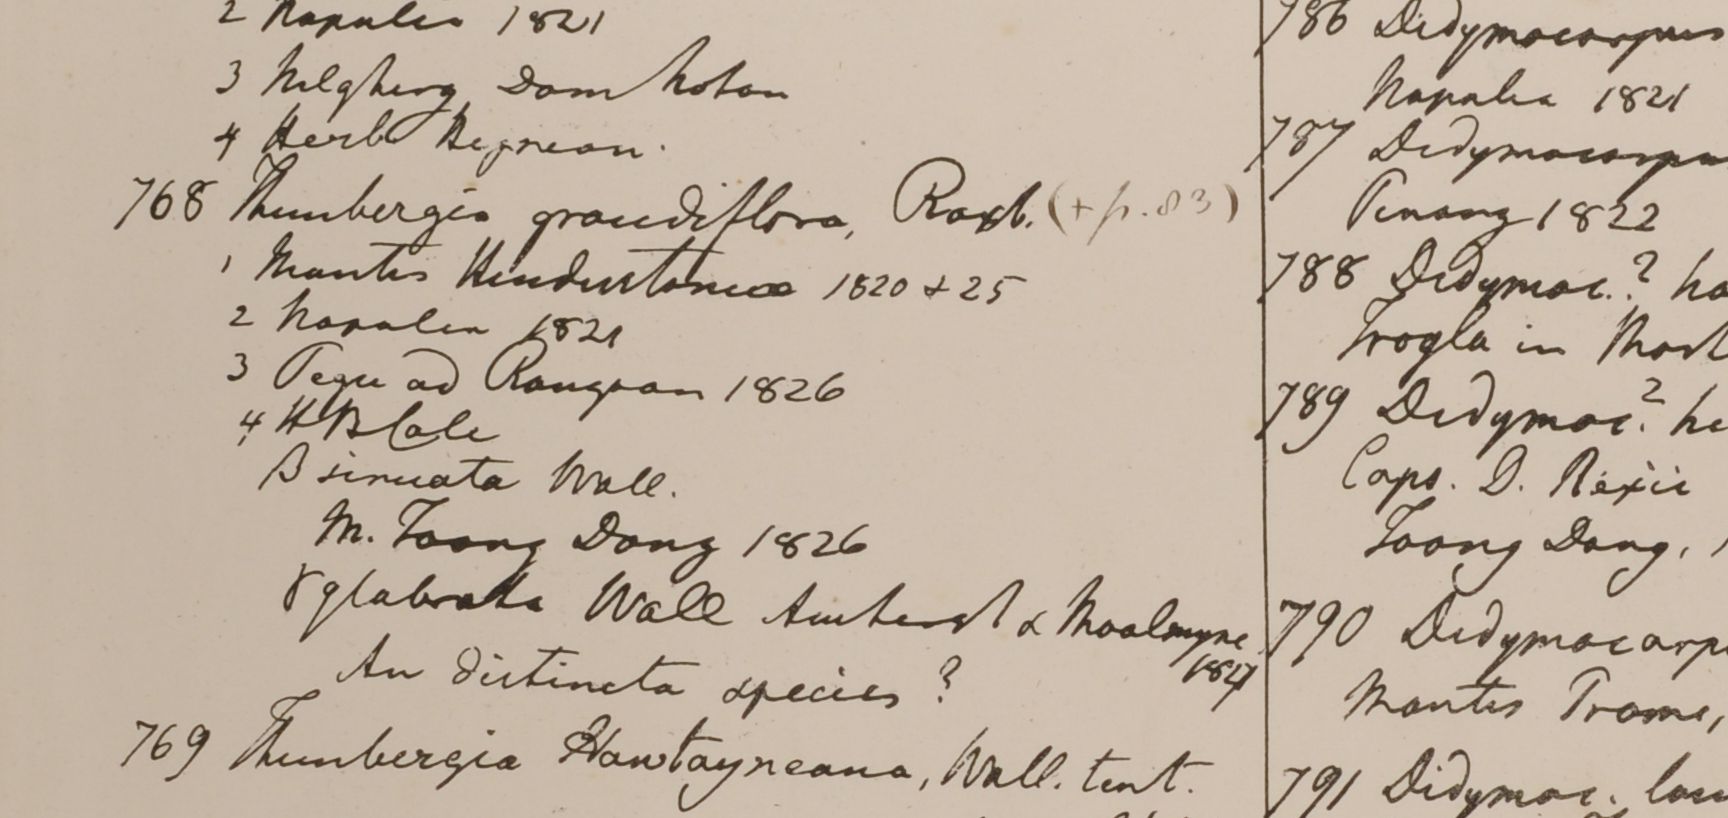 2 Napalia 1821
3 Nilghery, Dom Noton
4 Herb Heynean.
768 Thunbergia grandiflora, Roxb. (+ p. 83)
1 Montis Hindustaniae 1820 + 25
2 Napalia 1821
3 Pegu ad Rangoan 1826
4 HB Calc
β sinuata Wall.
M. Toong Dong 1826
γ glabrata Wall Amherst & Moalmyne
1827
An distincta species ?
769 Thunbergia Hawtayneana, Wall. tent.
786 Didymocarpus
Napalia 1821
787 Didymocarpu
Penang 1822
788 Didymoc.? ho
Trogla in Mont
789 Didymoc.? he
Caps. D. Rexii
Toong Dong,
790 Didymocarp
Montis Prome,
791 Didymoc.